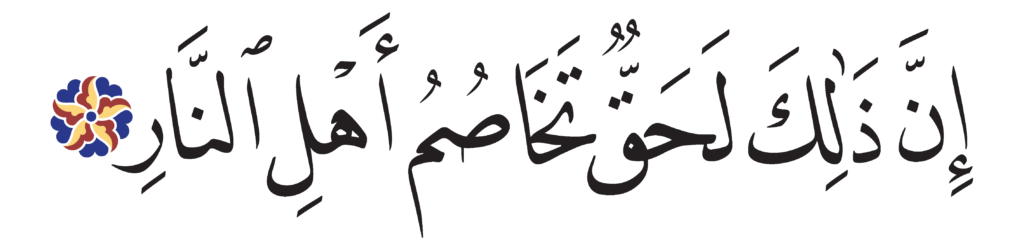 إِنَّ ذَٰلِكَ لَحَقٌّ تَخَاصُمُ أَهْلِ ٱلنَّارِ